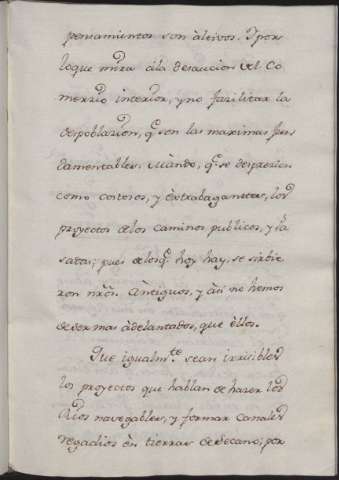 pensamientos son àltivos. Y por
loque mira ala desaucion del Co
mercio interior, y no facilitar la
despoblacion, q.e son las maximas fun
damentables; Mando, q.e se desprecien
como costosos, y èxtrabagantes, los
proyectos de los caminos publicos, y la
satas; pues de los q.e hoy hay, se sirbie
ron nros. Antiguos, y asi no hemos
de ser mas àdelantados, que èllos.
Que igualm.te sean irrisibles
los proyectos que hablan de hacer los
Rios navegables, y formar canales
regadios èn tierras de secano; por